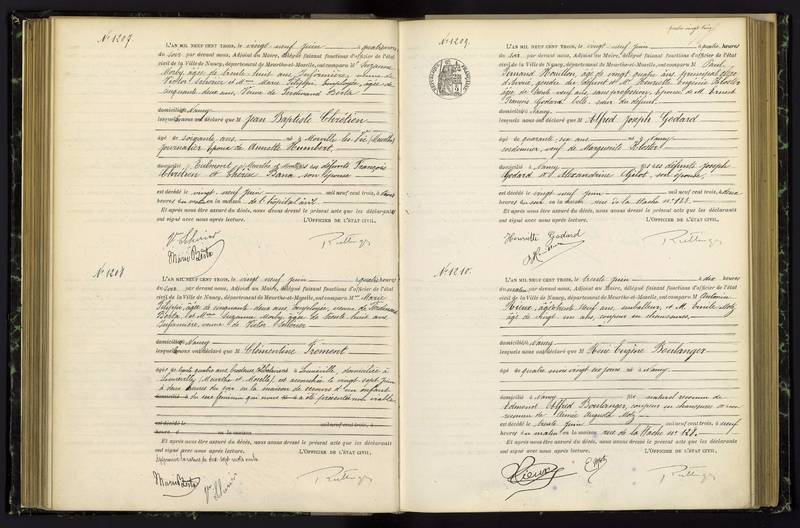 N° 1207.
L'AN MIL NEUF CENT TROIS, le vingt neuf juin à quatre heures
du soir par devant nous, Adjoint au Maire, délégué faisant fonctions d'officier de l'état
civil de la Ville de Nancy, département de Meurthe-et-Moselle, ont comparu M me Suzanne
âgée de trente huit ans, Infirmière, veuve de
Victor
cinquante deux ans, Veuve de Ferdinand Berta
domiciliés à Nancy
lesquels nous ont déclaré que M Jean Baptiste Chrétien
âgé de soixante ans né à Morville les Vic, (Meurthe)
journalier époux de Annette Humbert,
domicilié à Eulmont, (Meurthe et Moselle) fils des défunts François
Chrétien et Thérèse Bana son épouse
est décédé le vingt neuf juin mil neuf cent trois, à
heures en la maison de l'hôpital civil
Et après nous être assuré du décès, nous avons dressé le présent acte que les déclarants
ont signé avec nous après lecture. L'OFFICIER DE L'ÉTAT CIVIL,
N° 1208
L'AN MIL NEUF CENT TROIS, le vingt neuf juin à quatre heures
du soir, par devant nous, Adjoint au Maire, délégué faisant fonctions d'officier de l'état
civil de la Ville de Nancy, département de Meurthe-et-Moselle, ont comparu M me Marie
âgée de cinquante deux ans, employée, veuve de Ferdinand
Berta et M me Suzanne âgée de trente huit ans
Infirmière, veuve de Victor
domiciliés à Nancy
lesquels nous ont déclaré que M Clémentine Froment
âgée de trente quatre ans à Lunéville, domiciliée à
(Meurthe et Moselle) est accouchée le vingt sept juin
à deux heures du soir en la maison de secours d'un enfant
du sexe féminin qui nous a été présenté non viable
est décédé le mil neuf cent trois, à
heures en la maison
Et après nous être assuré du décès, nous avons dressé le présent acte que les déclarants
ont signé avec nous après lecture. L'OFFICIER DE L'ÉTAT CIVIL,
N° 1209.
RÉPUBLIQUE FRANÇAISE
L'AN MIL NEUF CENT TROIS, le vingt neuf juin à quatre heures
du soir par devant nous, Adjoint au Maire, délégué faisant fonctions d'officier de l'état
civil de la Ville de Nancy, département de Meurthe-et-Moselle, ont comparu M Paul
Fernand âgé de vingt quatre ans, principal clerc
d'avoué, gendre du défunt et M me Henriette Eugénie
âgée de trente neuf ans, sans profession, épouse de M. Ernest
François Godard belle sœur du défunt.
domiciliés à Nancy
lesquels nous ont déclaré que M Alfred Joseph Godard
âgé de quarante six ans né à Nancy
cordonnier, veuf de Marguerite
domicilié à Nancy fils des défunts Joseph
Godard et Alexandrine son épouse,
est décédé le vingt neuf juin mil neuf cent trois, à deux
heures du soir en la maison rue de la Hache n° 128.
Et après nous être assuré du décès, nous avons dressé le présent acte que les déclarants
ont signé avec nous après lecture. L'OFFICIER DE L'ÉTAT CIVIL,
Henriette Godard
N° 1210.
L'AN MIL NEUF CENT TROIS, le trente juin à dix heures
du matin par devant nous, Adjoint au Maire, délégué faisant fonctions d'officier de l'état
civil de la Ville de Nancy, département de Meurthe-et-Moselle, ont comparu M Antonin
Rieux, âgé de trente neuf ans, emballeur, et M. Emile Motz
âgé de vingt un ans, coupeur en chaussures,
domiciliés à Nancy
lesquels nous ont déclaré que M René Eugène Boulanger
âgé de quatre mois vingt six jours né à Nancy
domicilié à Nancy fils naturel reconnu de
Edmond Alfred Boulanger, coupeur en chaussures et non
reconnu de Aimée Augusta Motz
est décédé le trente juin mil neuf cent trois, à neuf
heures du matin en la maison rue de la Hache n° 128.
Et après nous être assuré du décès, nous avons dressé le présent acte que les déclarants
ont signé avec nous après lecture. L'OFFICIER DE L'ÉTAT CIVIL,
Rieux